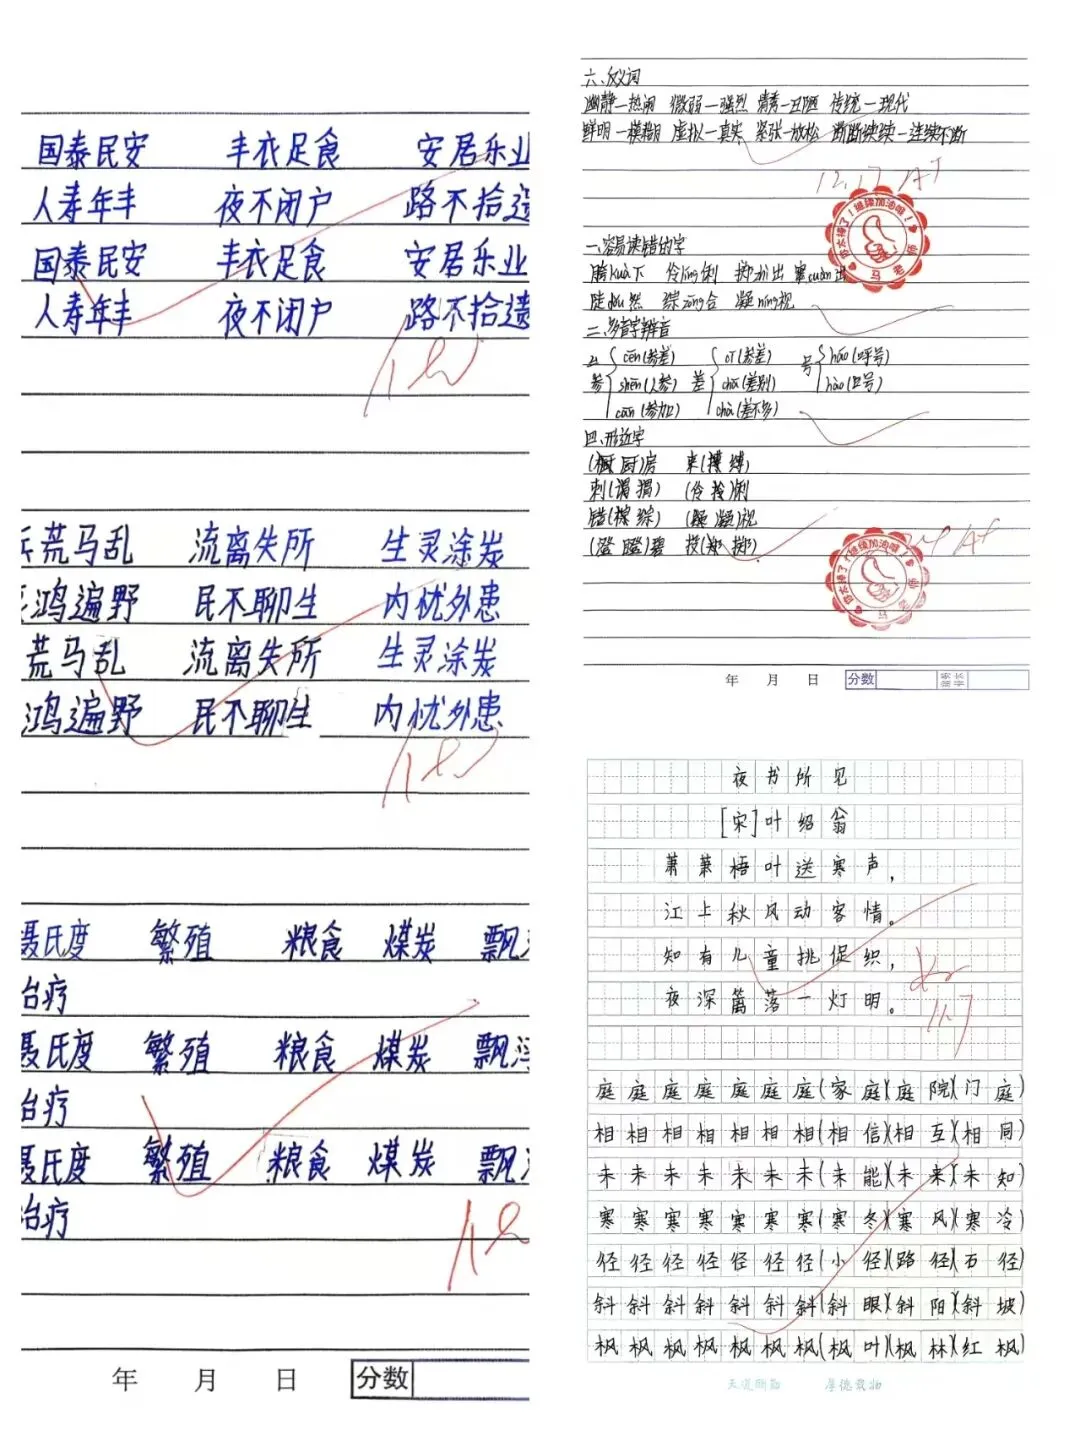 国泰民安 丰衣足食 安居乐业
人寿年丰 夜不闭户 路不拾遗
国泰民安 丰衣足食 安居乐业
人寿年丰 夜不闭户 路不拾遗
荒马乱 流离失所 生灵涂炭
鸿遍野 民不聊生 内忧外患
荒马乱 流离失所 生灵涂炭
鸿遍野 民不聊生 内忧外患
聂氏度 繁殖 粮食 煤炭 飘
治疗
聂氏度 繁殖 粮食 煤炭 飘浮
治疗
聂氏度 繁殖 粮食 煤炭 飘
治疗
年 月 日 分数
六、反义词
幽静—热闹 微弱—强烈 清秀—丑陋 传统—现代
鲜明—模糊 虚拟—真实 紧张—放松 断断续续—连续不断
12.17 A+
你太棒了!继续加油哦!
马老师
一、容易读错的字
胯kuà下 伶líng俐 掷zhì出 窜cuàn出
陡dǒu然 综zōng合 凝níng视
二、多音字辨音
参 cēn(参差) shēn(人参) cān(参加)
差 cī(参差) chā(差别) chà(差不多)
号 háo(呼号) hào(口号)
四、形近字
(橱 厨)房 束(搏 缚)
刺(谓 猬) (伶 拎)俐
错(棕 综) 凝)视
(澄 瞪)碧 投(郑 掷)
A+
你太棒了!继续加油哦!
马老师
年 月 日 分数
夜书所见
[宋]叶绍翁
萧萧梧叶送寒声,
江上秋风动客情。
知有儿童挑促织,
夜深篱落一灯明。
11.7
庭庭庭庭庭庭庭(家庭)(庭院)(门庭)
相相相相相相相(相信)(相互)(相同)
未未未未未未未(未能)(未来)(未知)
寒寒寒寒寒寒寒(寒冬)(寒风)(寒冷)
径径径径径径径(小径)(路径)(石径)
斜斜斜斜斜斜斜(斜眼)(斜阳)(斜坡)
枫枫枫枫枫枫枫(枫叶)(枫林)(红枫)
天道酬勤 厚德载物